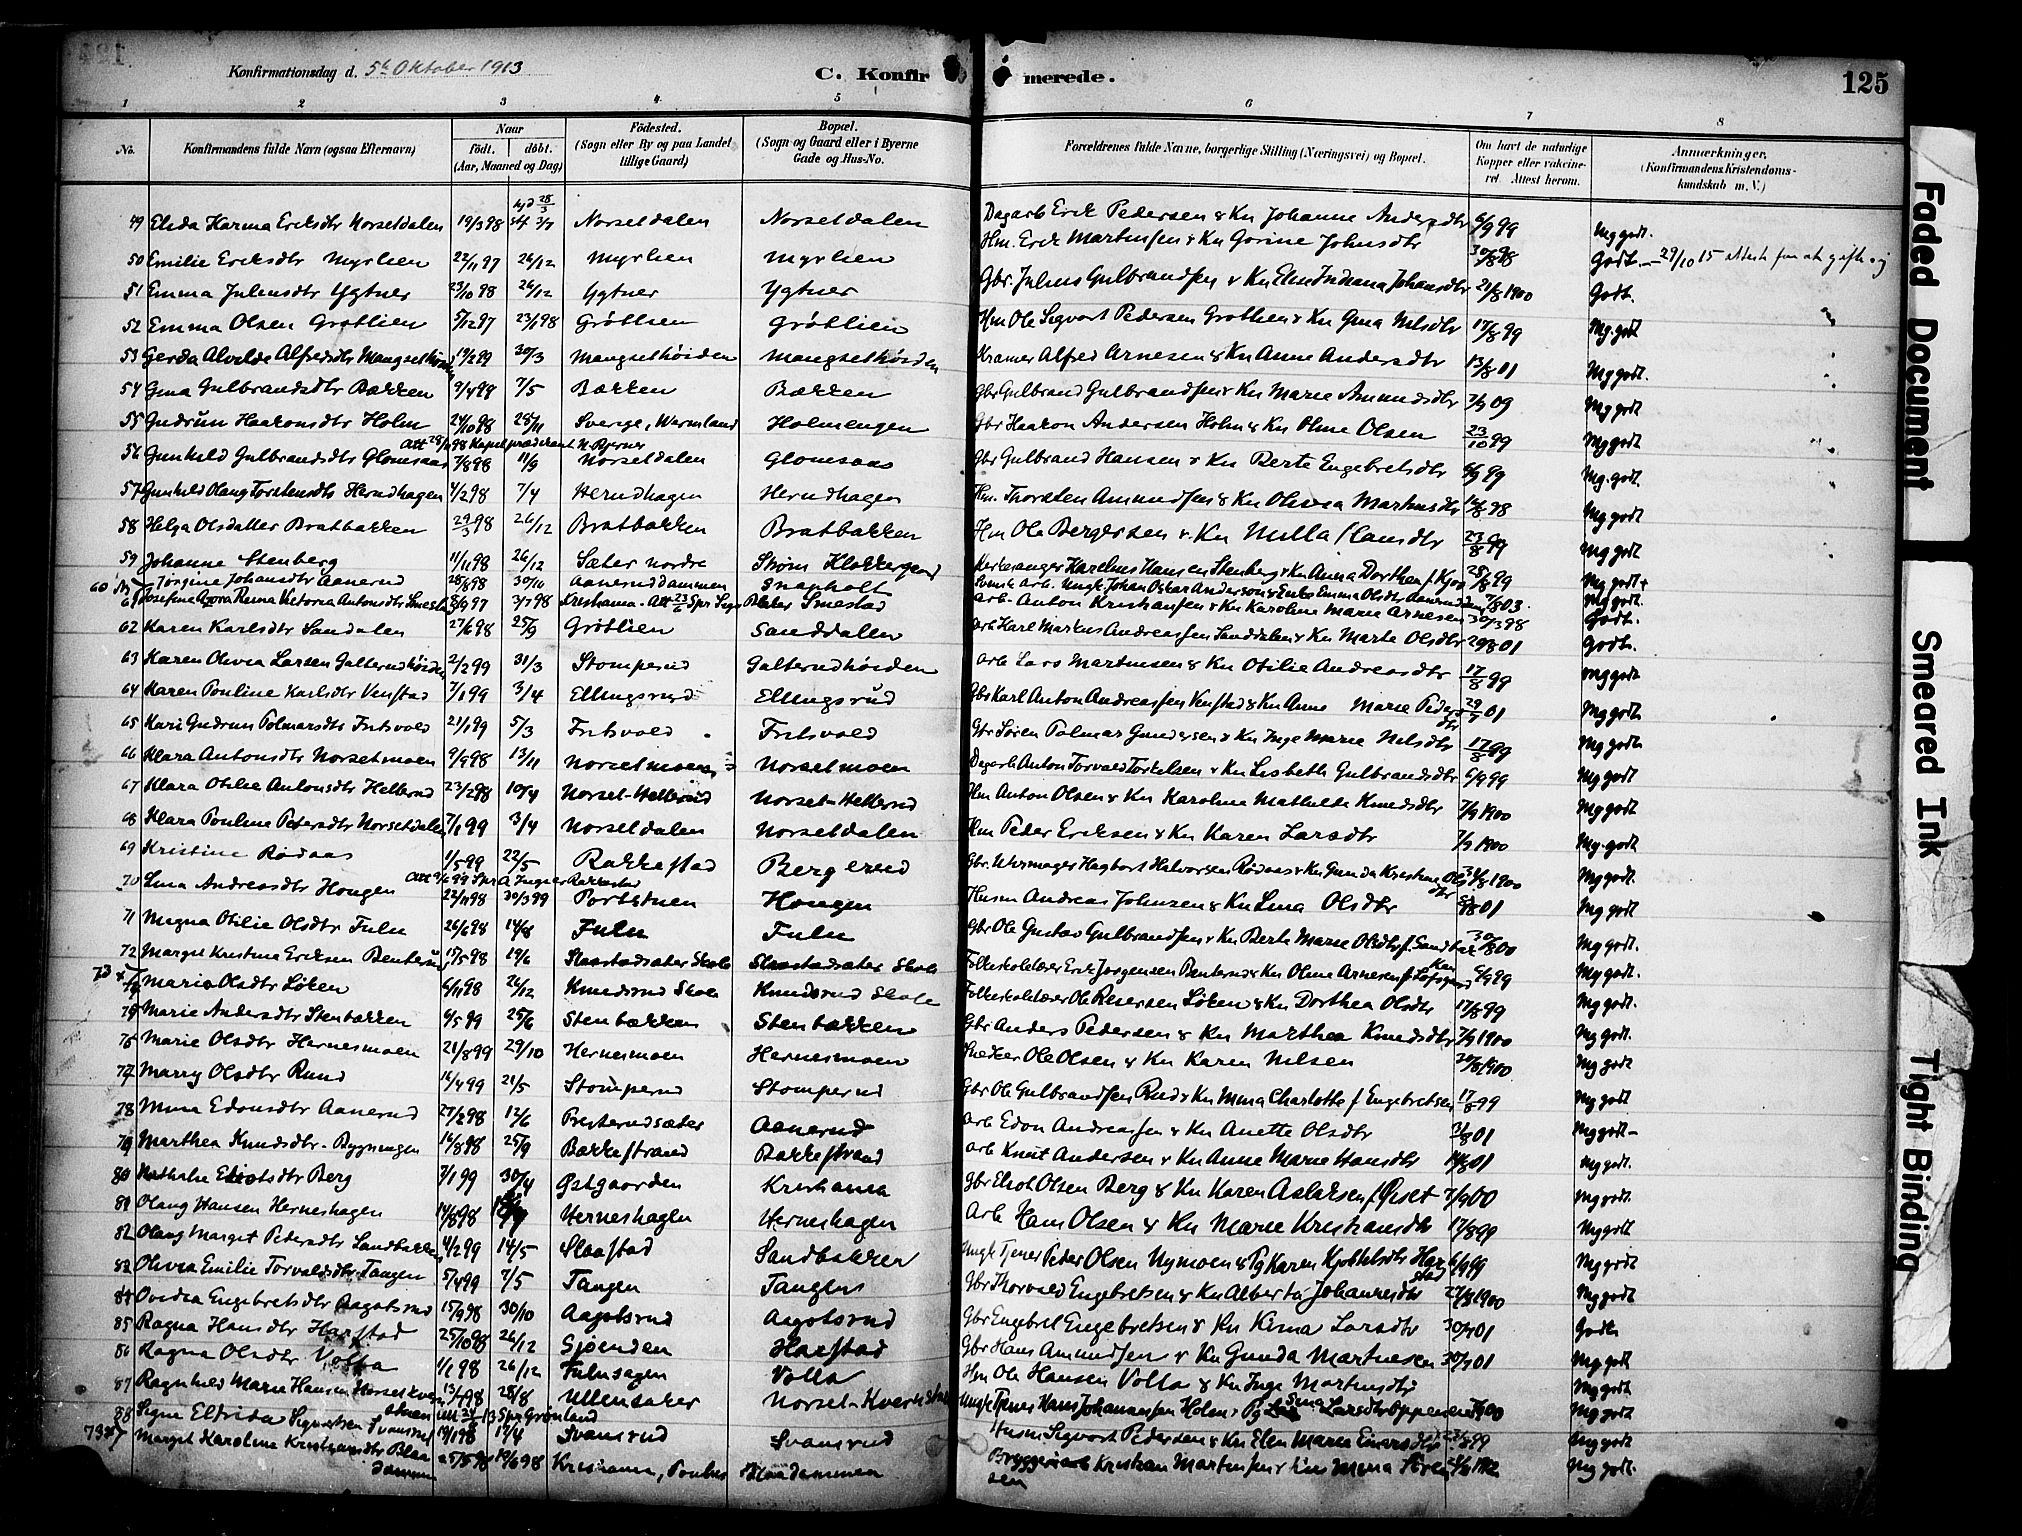 Konfirmationsdag d. 5te Oktober 1913
C. Konfirmerede.
125
1 2 3 4 5 6 7 8
No. Konfirmandens fulde Navn (ogsaa Efternavn) Naar født. døbt. (Aar, Maaned og Dag) Födested. (Sogn eller By og paa Landet tillige Gaard) Bopæl. (Sogn og Gaard eller i Byerne Gade og Hus-No. Forældrenes fulde Navne, borgerlige Stilling (Næringsvei) og Bopæl. Om havt de naturlige Kopper eller vakcineret. Attest herom. Anmærkninger, (Konfirmandens Kristendomskundskab m. V.)
49 Elida Karina Eriksdtr Norsetdalen 19/3 98 Norsetdalen Norsetdalen Dagarb Erik Pedersen & Kn Johanne Andersdtr 6/9 99 Mg godt.
50 Emilie Eriksdtr Myrlien 22/11 97 26/12 Myrlien Myrlien Hm. Erik Martinsen & Kn Gorine Johnsdtr Godt. 29/10 15 attest for at gifte sig
51 Emma Juliusdtr Ygtner 23/10 98 26/12 Ygtner Ygtner Gbr. Julius Gulbrandsen & Kn Elise Indiana Johansdtr 21/8 1900 Godt.
52 Emma Olsen Grøtlien 5/12 97 23/1 98 Grøtlien Grøtlien Hm Ole Sigvart Pedersen Grøtlien & Kn Gina Nilsdtr 17/8 99 Mg. godt
53 Gerda Alvilde Alfredsdtr Mangsethøiden 19/2 99 30/3 Mangsethøiden Mangsethøiden Kramer Alfred Arnesen & Kn Anne Andersdtr 13/8 01 Mg godt.
54 Gina Gulbrandsdtr Bakken 9/4 98 7/5 Bakken Bakken Gbr Gulbrand Gulbrandsen & Kn Marie Amundsdtr 7/9 09 Mg godt
55 Gudrun Haakonsdtr Holm 24/10 98 28/11 Sverge, Wermland Holmengen Gbr Haakon Andersen Holm & Kn Oline Olsen 23/10 99 Mg godt
56 Gunhild Gulbrandsdtr Glomsaas 7/8 98 11/9 Norsetdalen Glomsaas Gbr Gulbrand Hansen & Kn Berte Engebretsdtr 6/9 99 Mg. godt
57 Gunhild Olaug Torstensdtr Herndhagen 4/2 98 7/4 Herndhagen Herndhagen Hm. Thorsten Amundsen & Kn Olivia Martinsdtr Mg godt
58 Helga Olsdatter Bratbakken 29/3 98 26/12 Bratbakken Bratbakken Hm Ole Bergersen & Kn Milla Hansdtr 23/8 99 Mg godt
59 Johanne Stenberg 11/11 98 26/12 Sæter nordre Strøm Klokkergaard Kirkesanger Karelius Hansen Stenberg & Kn Anna Dorthea f. Kjos 28/8 99 Mg godt+
60 Jørgine Johansdtr Aanerud 28/8 98 30/10 Aanerud dammen Snapholt Svensk arb. Ungk Johan Oskar Anderson & Enke Emma Olsdtr Mg godt.
61 Josefine Victoria Antonsdtr Smestad 3/7 98 Kristiania Smestad Arb. Anton Kristiansen & Kn Karoline Marie Arnesen Godt.
62 Karen Karlsdtr Sandalen 27/6 98 25/9 Grøtlien Sanddalen Arb Karl Markus Andreassen Sanddalen & Kn Marte Olsdtr 29/8 01 Godt.
63 Karen Olivia Larsen Galterudhøiden 2/2 99 31/3 Stomperud Galterudhøiden Arb Lars Martinsen & Kn Otilie Andreasdtr 17/8 99 Mg godt
64 Karen Pouline Karlsdtr Venstad 7/1 99 3/4 Ellingsrud Ellingsrud Gbr Karl Anton Andreassen Venstad & Kn Anne Marie Pedersdtr 01 Mg godt
65 Kari Gudrun Polmarsdtr Fritsvold 21/1 99 5/3 Fritsvold Fritsvold Gbr Søren Polmar Gundersen & Kn Inge Marie Nilsdtr 17/8 99 Mg godt
66 Klara Antonsdtr Norsetmoen 9/9 98 13/11 Norsetmoen Norsetmoen Dagarb Anton Torvald Torkelsen & Kn Lisbeth Gulbrandsdtr 6/9 99 Mg godt
67 Klara Otilie Antonsdtr Hellerud 23/2 98 10/4 Norset-Hellerud Norset-Hellerud Hm Anton Olsen & Kn Karoline Mathilde Knudsdtr 7/9 1900 Mg godt
68 Klara Pouline Pedersdtr Norsetdalen 7/1 99 3/4 Norsetdalen Norsetdalen Hm Peder Eriksen & Kn Karen Larsdtr 7/9 1900 Mg. godt
69 Kristine Rødaas 1/5 99 22/5 Rakkestad Bergerud Gbr. Uhrmager Hagbart Halvorsen Rødaas & Kn Gunda Kristine Olsdtr 1900 Mg godt.
70 Lina Andreasdtr Hougen 22/11 98 30/3 99 Portstuen Hougen Husm Andreas Johnsen & Kn Lina Olsdtr 01 Mg godt
71 Magna Otilie Olsdtr Fulu 26/6 98 14/8 Fulu Fulu Gbr Ole Gustav Gulbrandsen & Kn Berte Marie Olsdtr 30/8 00 Mg godt.
72 Margit Kristine Eriksen Benterud 17/5 98 19/6 Slaastadsæter Skole Slaastadsæter Skole Folkeskolelærer Erik Jørgensen Benterud & Kn Oline Arnesen 6/9 99 Mg godt.
Marie Olsdtr Løken 6/11 98 26/12 Knudsrud Skole Knudsrud Skole Folkeskolelærer Ole Løken & Kn Dorthea Olsdtr 17/8 99 Mg godt.
75 Marie Andersdtr Stenbakken 6/5 99 25/6 Stenbakken Stenbakken Gbr Anders Pedersen & Kn Marthea Knudsdtr 7/9 1900 Mg godt.
76 Marie Olsdtr Hernesmoen 21/8 99 29/10 Hernesmoen Hernesmoen Snedker Ole Olsen & Kn Karen Nilsen 1900 Mg godt
77 Marry Olsdtr Rund 16/4 99 21/5 Stomperud Stomperud Gbr Ole Gulbrandsen Rud & Kn Mina Charlotte f Engebretsen 17/8 99 Mg godt
78 Mina Edonsdtr Aanerud 27/2 98 12/6 Benterudsæter Aanerud Arb Edon Andreassen & Kn Anette Olsdtr 3/8 01 Mg godt
79 Marthea Knudsdtr Bygningen 16/8 98 25/9 Bakkestrand Bakkestrand Arb Knut Andersen & Kn Anne Marie Hansdtr 01 Mg godt.
80 Nathalie Eliotsdtr Berg 7/1 99 30/4 Østgaarden Kristiania Gbr Eliot Olsen Berg & Kn Karen Aslaksen f Øiset 7/9 00 Mg godt
81 Olaug Hansen Herneshagen 14/8 98 Herneshagen Herneshagen Arb Hans Olsen & Kn Marie Kristiansdtr 17/8 99 Mg godt
82 Olaug Margit Pedersdtr Sandbakken 4/2 99 14/5 Slaastad Sandbakken Ungk Tjener Peder Olsen Nymoen & Pg Karen Kjostelsdtr Harstad 6/9 99 Mg godt
83 Olivia Emilie Torvaldsdtr Tangen 5/4 99 7/5 Tangen Tangen Gbr Thorvald Engebretsen & Kn Alberta Johannesdtr 27/8 1900 Mg godt
84 Ovidia Engebretsdtr Aagotsrud 15/9 98 30/10 Aagotsrud Aagotsrud Gbr Engebret Engebretsen & Kn Larsdtr 30/7 01 Godt
85 Ragna Hansdtr Harstad 25/10 98 26/12 Sjøenden Harstad Gbr Hans Amundsen & Kn Gunda Martinsen 30/7 01 Mg godt
86 Ragna Olsdtr Volla 1/1 98 26/12 Fulusagen Volla Hm Ole Hansen Volla & Kn Inge Martinsdtr Mg godt
87 Ragnhild Marie Hansen 13/7 98 28/8 Ullensaker Ungk Tjener Hans Johannessen Holen & Pg Lina Larsdtr 00 Mg godt
88 Signe Elfrida Sigvartsen Svansrud 19/1 98 17/4 Svansrud Svansrud Husm Sigvart Pedersen & Kn Elen Marie Einarsdtr 23/8 99 Mg godt
Margit Karoline Kristiansdtr Blaadammen 25/5 98 19/6 98 Kristiania Blaadammen Bryggeriarb Kristian Martinsen & Kn Mina Iversen Mg godt.
Faded Document
Smeared Ink
Tight Binding